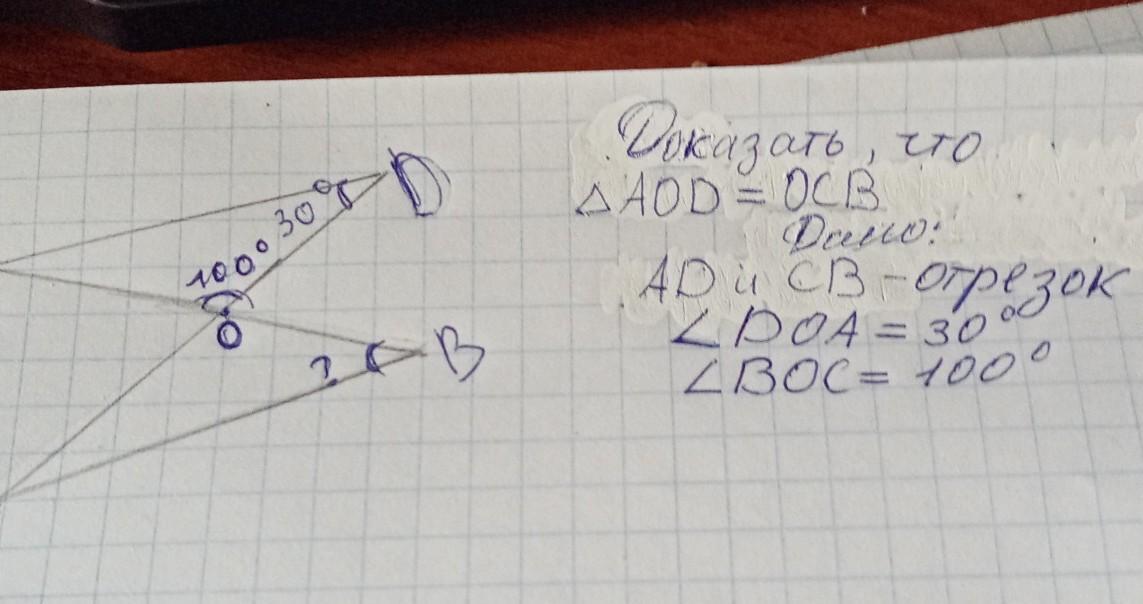 D
30°
100°
O
?
B
Доказать, что
△AOD = OCB
Дано:
AD и CB - отрезок
∠DOA = 30°
∠BOC = 100°